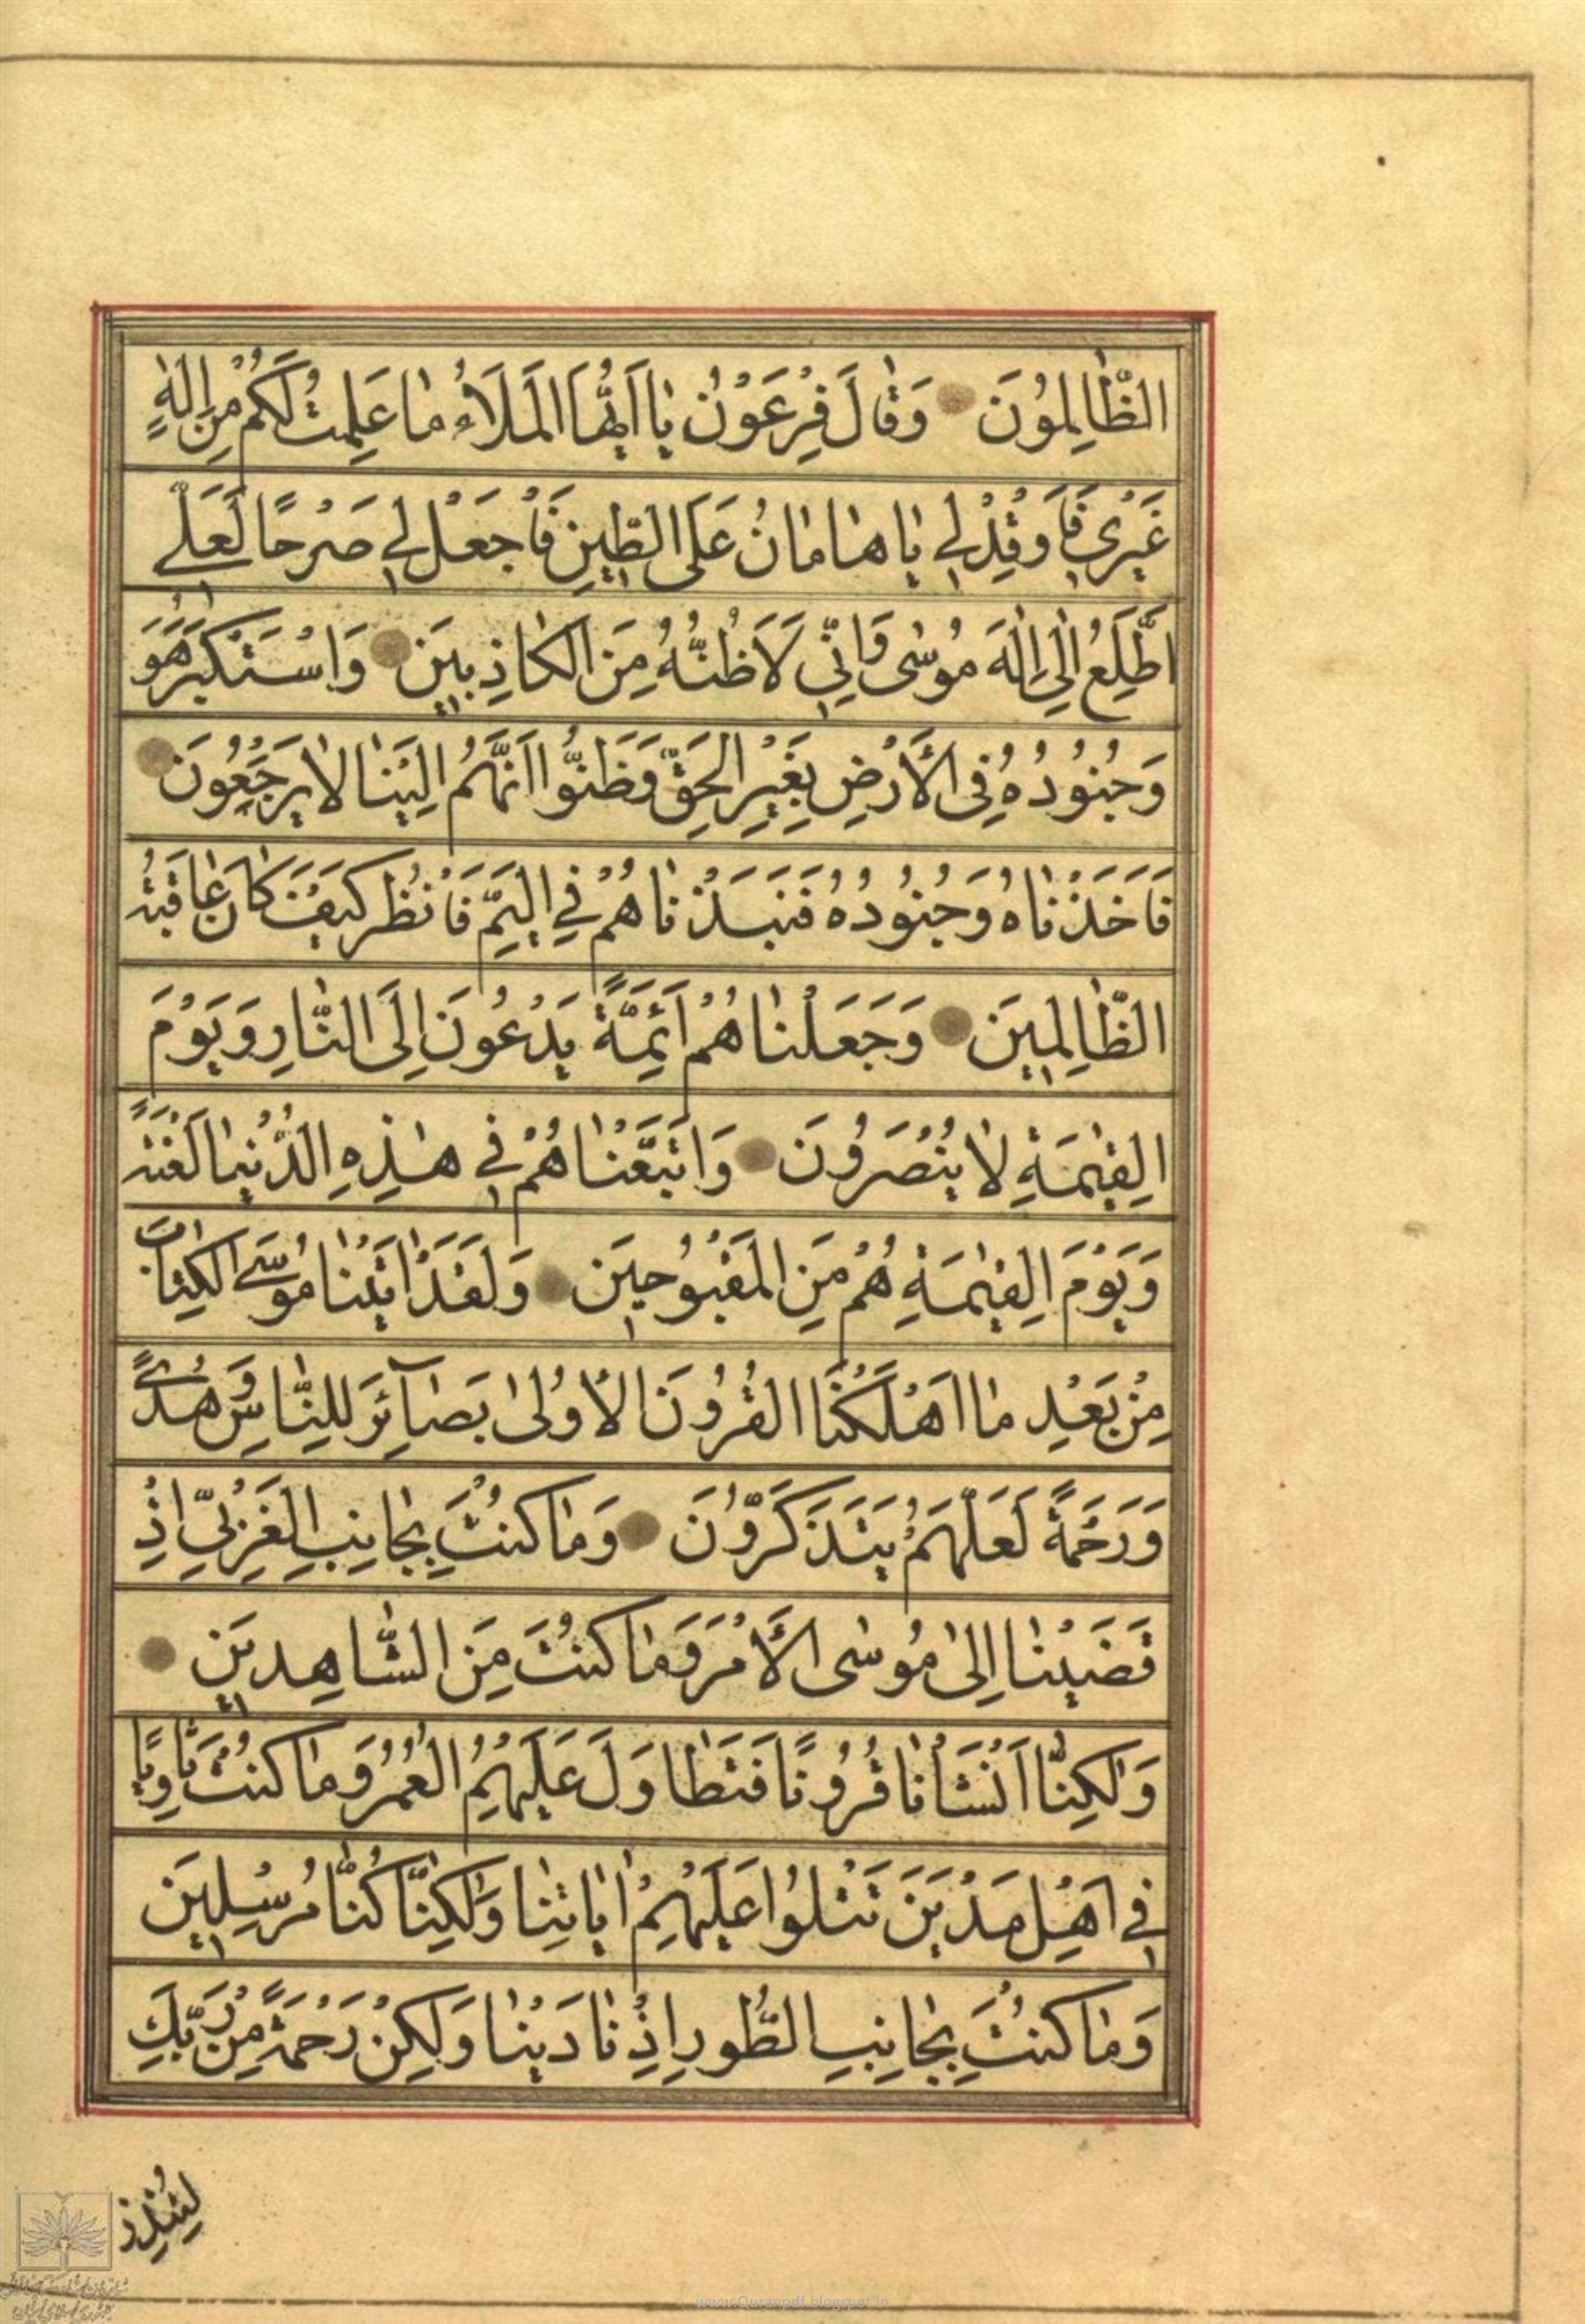 الظَّالِمُونَ وَقَالَ فِرْعَوْنُ يَا اَيُّهَا الْمَلَاُ مَا عَلِمْتُ لَكُمْ مِنْ اِلٰهٍ
غَيْرِي فَاَوْقِدْ لِي يَا هَامَانُ عَلَى الطِّينِ فَاجْعَلْ لِي صَرْحًا لَعَلِّي
اَطَّلِعُ اِلٰى اِلٰهِ مُوسٰى وَاِنِّي لَاَظُنُّهُ مِنَ الْكَاذِبِينَ وَاسْتَكْبَرَ هُوَ
وَجُنُودُهُ فِي الْاَرْضِ بِغَيْرِ الْحَقِّ وَظَنُّوا اَنَّهُمْ اِلَيْنَا لَا يَرْجَعُونَ
فَاَخَذْنَاهُ وَجُنُودَهُ فَنَبَذْنَاهُمْ فِي الْيَمِّ فَانْظُرْ كَيْفَ كَانَ عَاقِبَةُ
الظَّالِمِينَ وَجَعَلْنَاهُمْ اَئِمَّةً يَدْعُونَ اِلَى النَّارِ وَيَوْمَ
الْقِيٰمَةِ لَا يُنْصَرُونَ وَاَتْبَعْنَاهُمْ فِي هٰذِهِ الدُّنْيَا لَعْنَةً
وَيَوْمَ الْقِيٰمَةِ هُمْ مِنَ الْمَقْبُوحِينَ وَلَقَدْ اٰتَيْنَا مُوسَى الْكِتَابَ
مِنْ بَعْدِ مَا اَهْلَكْنَا الْقُرُونَ الْاُولٰى بَصَآئِرَ لِلنَّاسِ وَهُدًى
وَرَحْمَةً لَعَلَّهُمْ يَتَذَكَّرُونَ وَمَا كُنْتَ بِجَانِبِ الْغَرْبِيِّ اِذْ
قَضَيْنَا اِلٰى مُوسٰى الْاَمْرَ وَمَا كُنْتَ مِنَ الشَّاهِدِينَ
وَلٰكِنَّا اَنْشَاْنَا قُرُونًا فَتَطَاوَلَ عَلَيْهِمُ الْعُمُرُ وَمَا كُنْتَ ثَاوِيًا
فِي اَهْلِ مَدْيَنَ تَتْلُوا عَلَيْهِمْ اٰيَاتِنَا وَلٰكِنَّا كُنَّا مُرْسِلِينَ
وَمَا كُنْتَ بِجَانِبِ الطُّورِ اِذْ نَادَيْنَا وَلٰكِنْ رَحْمَةً مِنْ رَبِّكَ
لِتُنْذِرَ
www.Quranpdf.blogspot.in